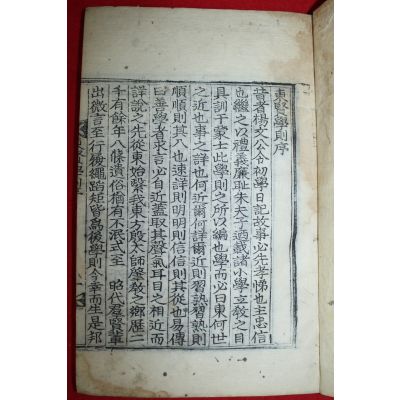 東賢學則序
昔者楊文公令初學日記故事必先孝悌也主忠信
也繼之以禮義廉耻朱夫子迺載諸小學立敎之目
具訓于蒙士此學則之所以編也學而必曰東何世
之近也事之詳也何近爾何詳爾近則習熟習熟則
順順則其入也速詳則明明則信信則其從也易傳
曰善學者求言必自近蓋取其聲氣耳目之相近而
詳說之先從東始發我東方殷太師肇敎之鄕歷二
千有餘年八條遺俗猶有不泯式至 昭代羣賢輩
出微言至行後繩蹈矩皆爲後學則今幸而生是邦